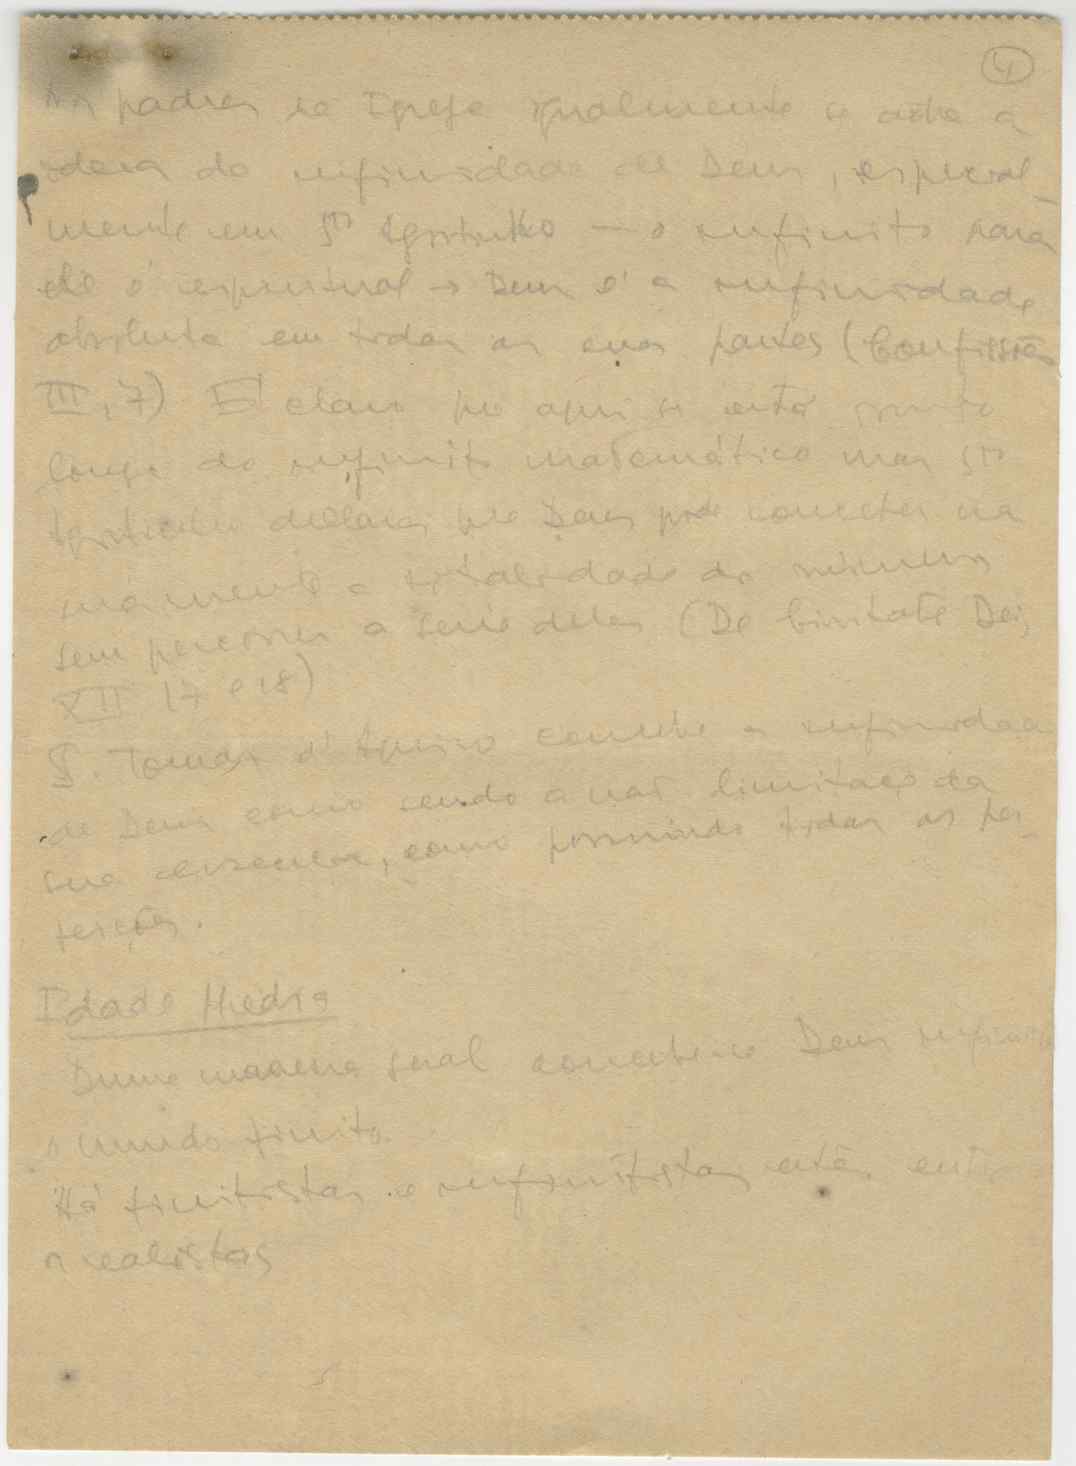 4
Nos padres da Igreja igualmente se acha a
ideia da infinidade de Deus, especial-
mente em Sto Agostinho — o infinito para
ele é espiritual → Deus é a infinidade
absoluta em todas as suas partes (Confissões
III, 7) É claro que aqui se está muito
longe do infinito matemático mas Sto
Agostinho declara que Deus pode conceber
a totalidade dos números
sem percorrer a serie deles (De Civitate Dei,
XII 17 e 18)
S. Tomás d'Aquino concebe a infinidade
de Deus como sendo a não limitação da
sua essencia, como possuindo todas as per-
feições.
Idade Media
Duma maneira geral Deus infinito
o mundo finito.
Há finitistas e infinitistas até entre
os realistas